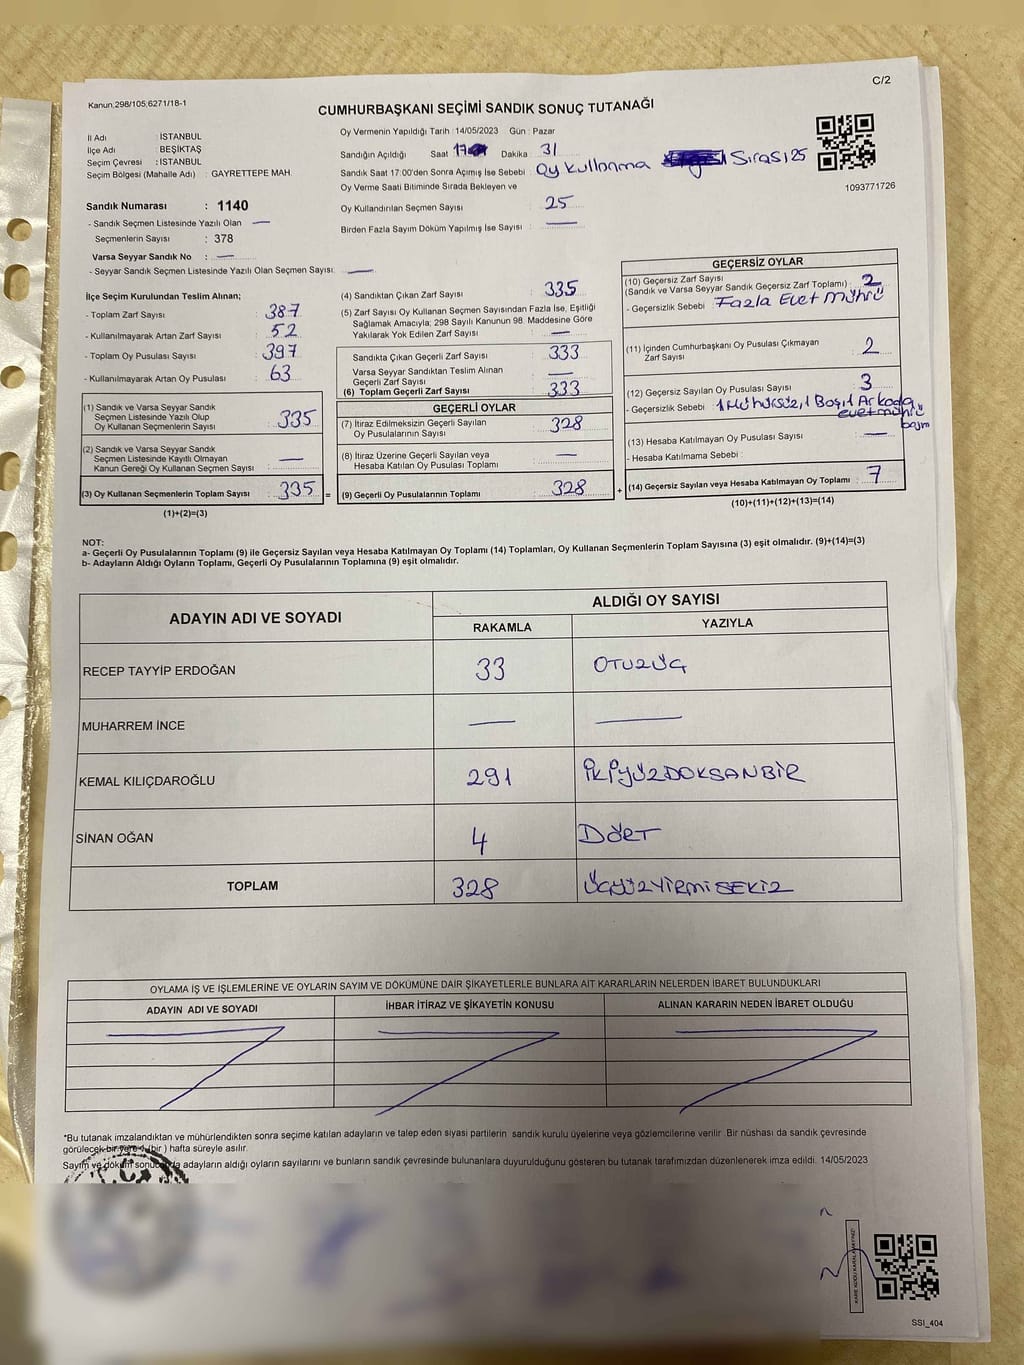 C/2
Kanun:298/105;6271/18-1
CUMHURBAŞKANI SEÇİMİ SANDIK SONUÇ TUTANAĞI
İl Adı : İSTANBUL
İlçe Adı : BEŞİKTAŞ
Seçim Çevresi : İSTANBUL
Seçim Bölgesi (Mahalle Adı) : GAYRETTEPE MAH.
Oy Vermenin Yapıldığı Tarih : 14/05/2023 Gün : Pazar
Sandığın Açıldığı Saat 17 Dakika 31
Sandık Saat 17.00'den Sonra Açımış İse Sebebi : Oy kullanma Sırası 25
Oy Verme Saati Bitiminde Sırada Bekleyen ve
Oy Kullandırılan Seçmen Sayısı : 25
Birden Fazla Sayım Döküm Yapılmış İse Sayısı : —
1093771726
Sandık Numarası : 1140
- Sandık Seçmen Listesinde Yazılı Olan —
Seçmenlerin Sayısı : 378
Varsa Seyyar Sandık No : —
- Seyyar Sandık Seçmen Listesinde Yazılı Olan Seçmen Sayısı : —
İlçe Seçim Kurulundan Teslim Alınan;
- Toplam Zarf Sayısı : 387
- Kullanılmayarak Artan Zarf Sayısı : 52
- Toplam Oy Pusulası Sayısı : 397
- Kullanılmayarak Artan Oy Pusulası : 63
(1) Sandık ve Varsa Seyyar Sandık
Seçmen Listesinde Yazılı Olup
Oy Kullanan Seçmenlerin Sayısı : 335
(2) Sandık ve Varsa Seyyar Sandık
Seçmen Listesinde Kayıtlı Olmayan
Kanun Gereği Oy Kullanan Seçmen Sayısı : —
(3) Oy Kullanan Seçmenlerin Toplam Sayısı : 335
(1)+(2)=(3)
(4) Sandıktan Çıkan Zarf Sayısı : 335
(5) Zarf Sayısı Oy Kullanan Seçmen Sayısından Fazla İse, Eşitliği
Sağlamak Amacıyla; 298 Sayılı Kanunun 98. Maddesine Göre
Yakılarak Yok Edilen Zarf Sayısı : —
Sandıkta Çıkan Geçerli Zarf Sayısı : 333
Varsa Seyyar Sandıktan Teslim Alınan
Geçerli Zarf Sayısı : —
(6) Toplam Geçerli Zarf Sayısı : 333
=
GEÇERLİ OYLAR
(7) İtiraz Edilmeksizin Geçerli Sayılan
Oy Pusulalarının Sayısı : 328
(8) İtiraz Üzerine Geçerli Sayılan veya
Hesaba Katılan Oy Pusulası Toplamı : —
(9) Geçerli Oy Pusulalarının Toplamı : 328
+
GEÇERSİZ OYLAR
(10) Geçersiz Zarf Sayısı
(Sandık ve Varsa Seyyar Sandık Geçersiz Zarf Toplamı) : 2
- Geçersizlik Sebebi : Fazla Evet Mührü
(11) İçinden Cumhurbaşkanı Oy Pusulası Çıkmayan
Zarf Sayısı : 2
(12) Geçersiz Sayılan Oy Pusulası Sayısı : 3
- Geçersizlik Sebebi : 1 Mühürsüz, 1 Boş, 1 Arkada
evet mührü
(13) Hesaba Katılmayan Oy Pusulası Sayısı : —
- Hesaba Katılmama Sebebi :
(14) Geçersiz Sayılan veya Hesaba Katılmayan Oy Toplamı : 7
(10)+(11)+(12)+(13)=(14)
NOT:
a- Geçerli Oy Pusulalarının Toplamı (9) ile Geçersiz Sayılan veya Hesaba Katılmayan Oy Toplamı (14) Toplamları, Oy Kullanan Seçmenlerin Toplam Sayısına (3) eşit olmalıdır. (9)+(14)=(3)
b- Adayların Aldığı Oyların Toplamı, Geçerli Oy Pusulalarının Toplamına (9) eşit olmalıdır.
ADAYIN ADI VE SOYADI
ALDIĞI OY SAYISI
RAKAMLA YAZIYLA
RECEP TAYYİP ERDOĞAN 33 OTUZÜÇ
MUHARREM İNCE — —
KEMAL KILIÇDAROĞLU 291 İKİYÜZDOKSANBİR
SİNAN OĞAN 4 DÖRT
TOPLAM 328 ÜÇYÜZYİRMİSEKİZ
OYLAMA İŞ VE İŞLEMLERİNE VE OYLARIN SAYIM VE DÖKÜMÜNE DAİR ŞİKAYETLERLE BUNLARA AİT KARARLARIN NELERDEN İBARET BULUNDUKLARI
ADAYIN ADI VE SOYADI İHBAR İTİRAZ VE ŞİKAYETİN KONUSU ALINAN KARARIN NEDEN İBARET OLDUĞU
*Bu tutanak imzalandıktan ve mühürlendikten sonra seçime katılan adayların ve talep eden siyasi partilerin sandık kurulu üyelerine veya gözlemcilerine verilir. Bir nüshası da sandık çevresinde
görülecek bir yere 1 (bir ) hafta süreyle asılır.
Sayım ve döküm sonucunda adayların aldığı oyların sayılarını ve bunların sandık çevresinde bulunanlara duyurulduğunu gösteren bu tutanak tarafımızdan düzenlenerek imza edildi. 14/05/2023
T.C.
SSI_404